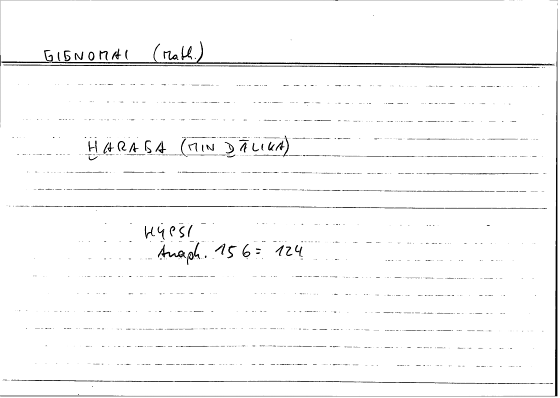 GIGNOMAI (math.)
ḪARAGA (MIN ḎĀLIKA)
HYPSI
Anaph. 156 = 124